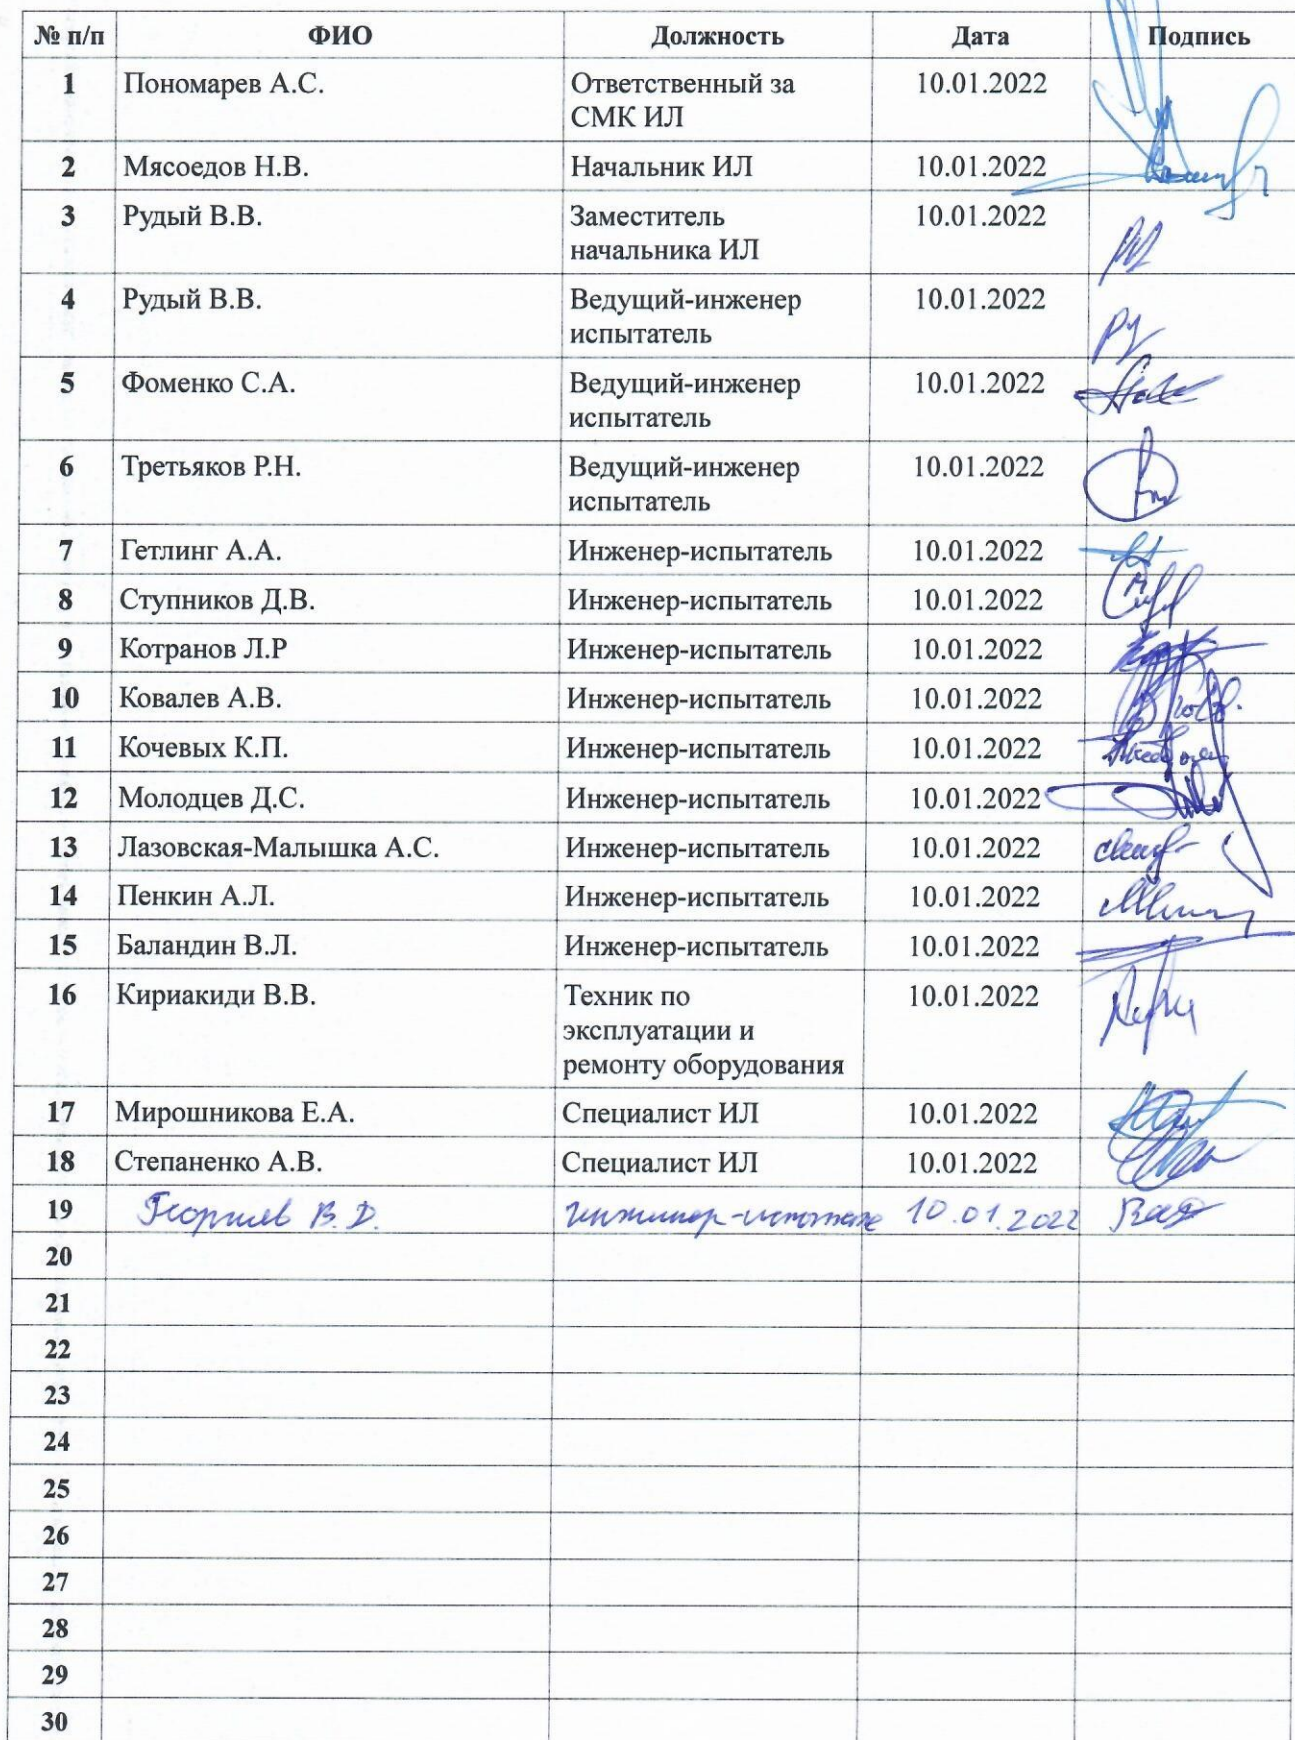 № п/п ФИО Должность Дата Подпись
1 Пономарев А.С. Ответственный за 10.01.2022
СМК ИЛ
2 Мясоедов Н.В. Начальник ИЛ 10.01.2022
3 Рудый В.В. Заместитель 10.01.2022
начальника ИЛ
4 Рудый В.В. Ведущий-инженер 10.01.2022
испытатель
5 Фоменко С.А. Ведущий-инженер 10.01.2022
испытатель
6 Третьяков Р.Н. Ведущий-инженер 10.01.2022
испытатель
7 Гетлинг А.А. Инженер-испытатель 10.01.2022
8 Ступников Д.В. Инженер-испытатель 10.01.2022
9 Котранов Л.Р Инженер-испытатель 10.01.2022
10 Ковалев А.В. Инженер-испытатель 10.01.2022
11 Кочевых К.П. Инженер-испытатель 10.01.2022
12 Молодцев Д.С. Инженер-испытатель 10.01.2022
13 Лазовская-Малышка А.С. Инженер-испытатель 10.01.2022
14 Пенкин А.Л. Инженер-испытатель 10.01.2022
15 Баландин В.Л. Инженер-испытатель 10.01.2022
16 Кириакиди В.В. Техник по 10.01.2022
эксплуатации и
ремонту оборудования
17 Мирошникова Е.А. Специалист ИЛ 10.01.2022
18 Степаненко А.В. Специалист ИЛ 10.01.2022
19 В.Д. 10.01.2022
20
21
22
23
24
25
26
27
28
29
30